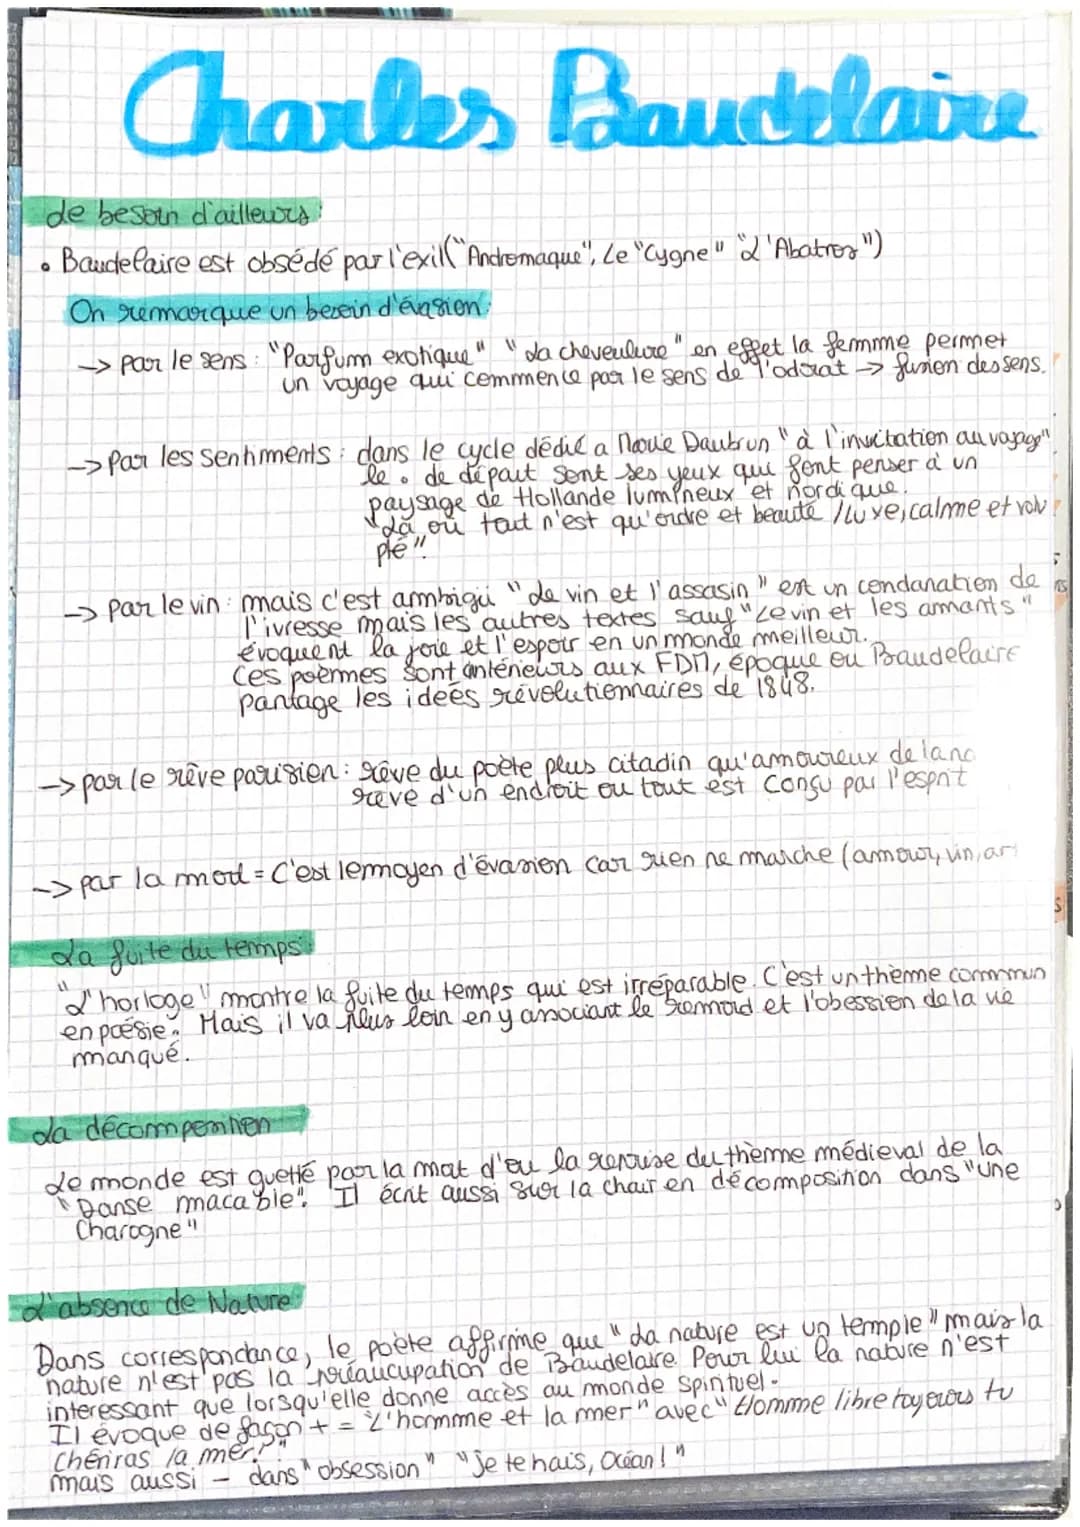 Charles Baudelaire
Le besoin d'ailleurs :
• Baudelaire est obsédé par l'exil ("Andromaque", Le "Cygne" "L'Abatros")
On remarque un besoin d'évasion :
-> par le sens : "Parfum exotique" "La cheveulure" en effet la femme permet
un voyage qui commence par le sens de l'odorat -> fusion des sens.
-> Par les sentiments : dans le cycle dédié a Marie Daubrun "à l'invitation au voyage"
le . de départ sont ses yeux qui font penser à un
paysage de Hollande lumineux et nordique.
"Là où tout n'est qu'ordre et beauté / Luxe, calme et volu
pté".
-> par le vin : mais c'est ambigü "Le vin et l'assasin" est un condanation de
l'ivresse mais les autres textes sauf "Le vin et les amants"
évoquent la joie et l'espoir en un monde meilleur.
Ces poèmes sont antérieurs aux FDM, époque ou Baudelaire
partage les ideés révolutionnaires de 1848.
-> par le rêve parisien : rêve du poète plus citadin qu'amoureux de la na
rêve d'un endroit ou tout est conçu par l'esprit
-> par la mort = C'est le moyen d'évasion car rien ne marche (amour, vin, art
La fuite du temps :
"L'horloge" montre la fuite du temps qui est irréparable. C'est un thème commun
en poésie. Mais il va plus loin en y associant le remord et l'obession de la vie
manqué.
La décomposition
Le monde est guetté par la mort d'ou la reprise du thème médieval de la
"Danse macabre". Il écrit aussi sur la chair en décomposition dans "Une
Charogne"
L'absence de Nature
Dans correspondance, le poète affirme que "La nature est un temple" mais la
nature n'est pas la préaucupation de Baudelaire. Pour lui la nature n'est
interessant que lorsqu'elle donne accès au monde spirituel.
Il évoque de façon + = "L'homme et la mer" avec "Homme libre toujours tu
chériras la mer !"
mais aussi - dans "obsession" "Je te hais, Océan !"